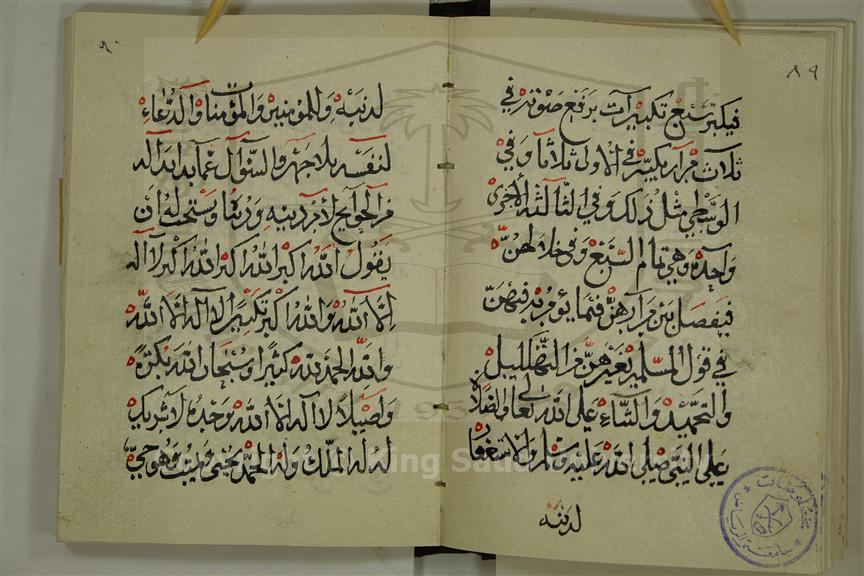 ٨٩
فيكبر سبع تكبيرات يرفع صوته في
ثلاث مرار يكبر في الاولى ثلاثا وفي
الوسطى مثل ذلك وفي الثالثة الأخرى
واحدة وهي تمام السبع وفي خلالهن
فيفصل بين مرارهن فيما يؤمر به فيهن
في قول المسلم بغيرهن من التهليل
والتحميد والثناء على الله تعالى والصلاة
على النبي صلى الله عليه وسلم والاستغفار
لدينه
٩٠
لدنبه وللمؤمنين والمؤمنات والدعاء
لنفسه بلا جهر والسؤال عما بدا له
من الحوايج لأمر دينه ودنيا ويستحب له ان
يقول الله اكبر الله اكبر الله اكبر لا اله
الا الله والله اكبر تكبيرا لا اله الا الله
والله الحمد لله كثيرا وسبحان الله بكرة
واصيلا لا اله الا الله وحده لا شريك
له له الملك وله الحمد يحيى ويميت وهو حي
مخطوطات
جامعة الرياض
King Saud